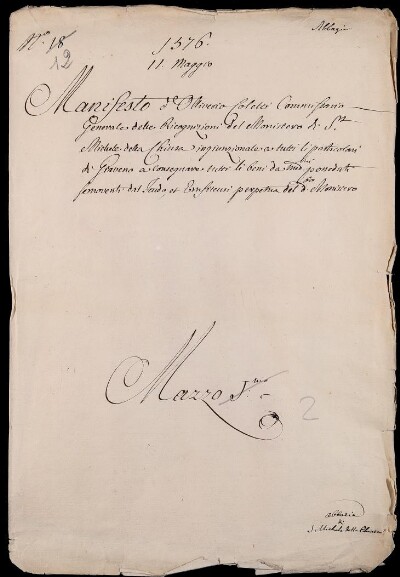 Abbazia
N.º 18
12
1576.
11. Maggio
Manifesto d' Ottiverio Coletti Commissario
Generale delle Ricognizioni del Monistero di S.t
Michele della Chiusa ingiunzionale a tutti li particolari
di Giaveno a consegnare tutti li beni da med.mi poneduti
semoventi dal feudo, et Enfiteusi perpetua del d.º Monistero
Mazzo P.mo
2
abbazia
di
S. Michele della Chiusa